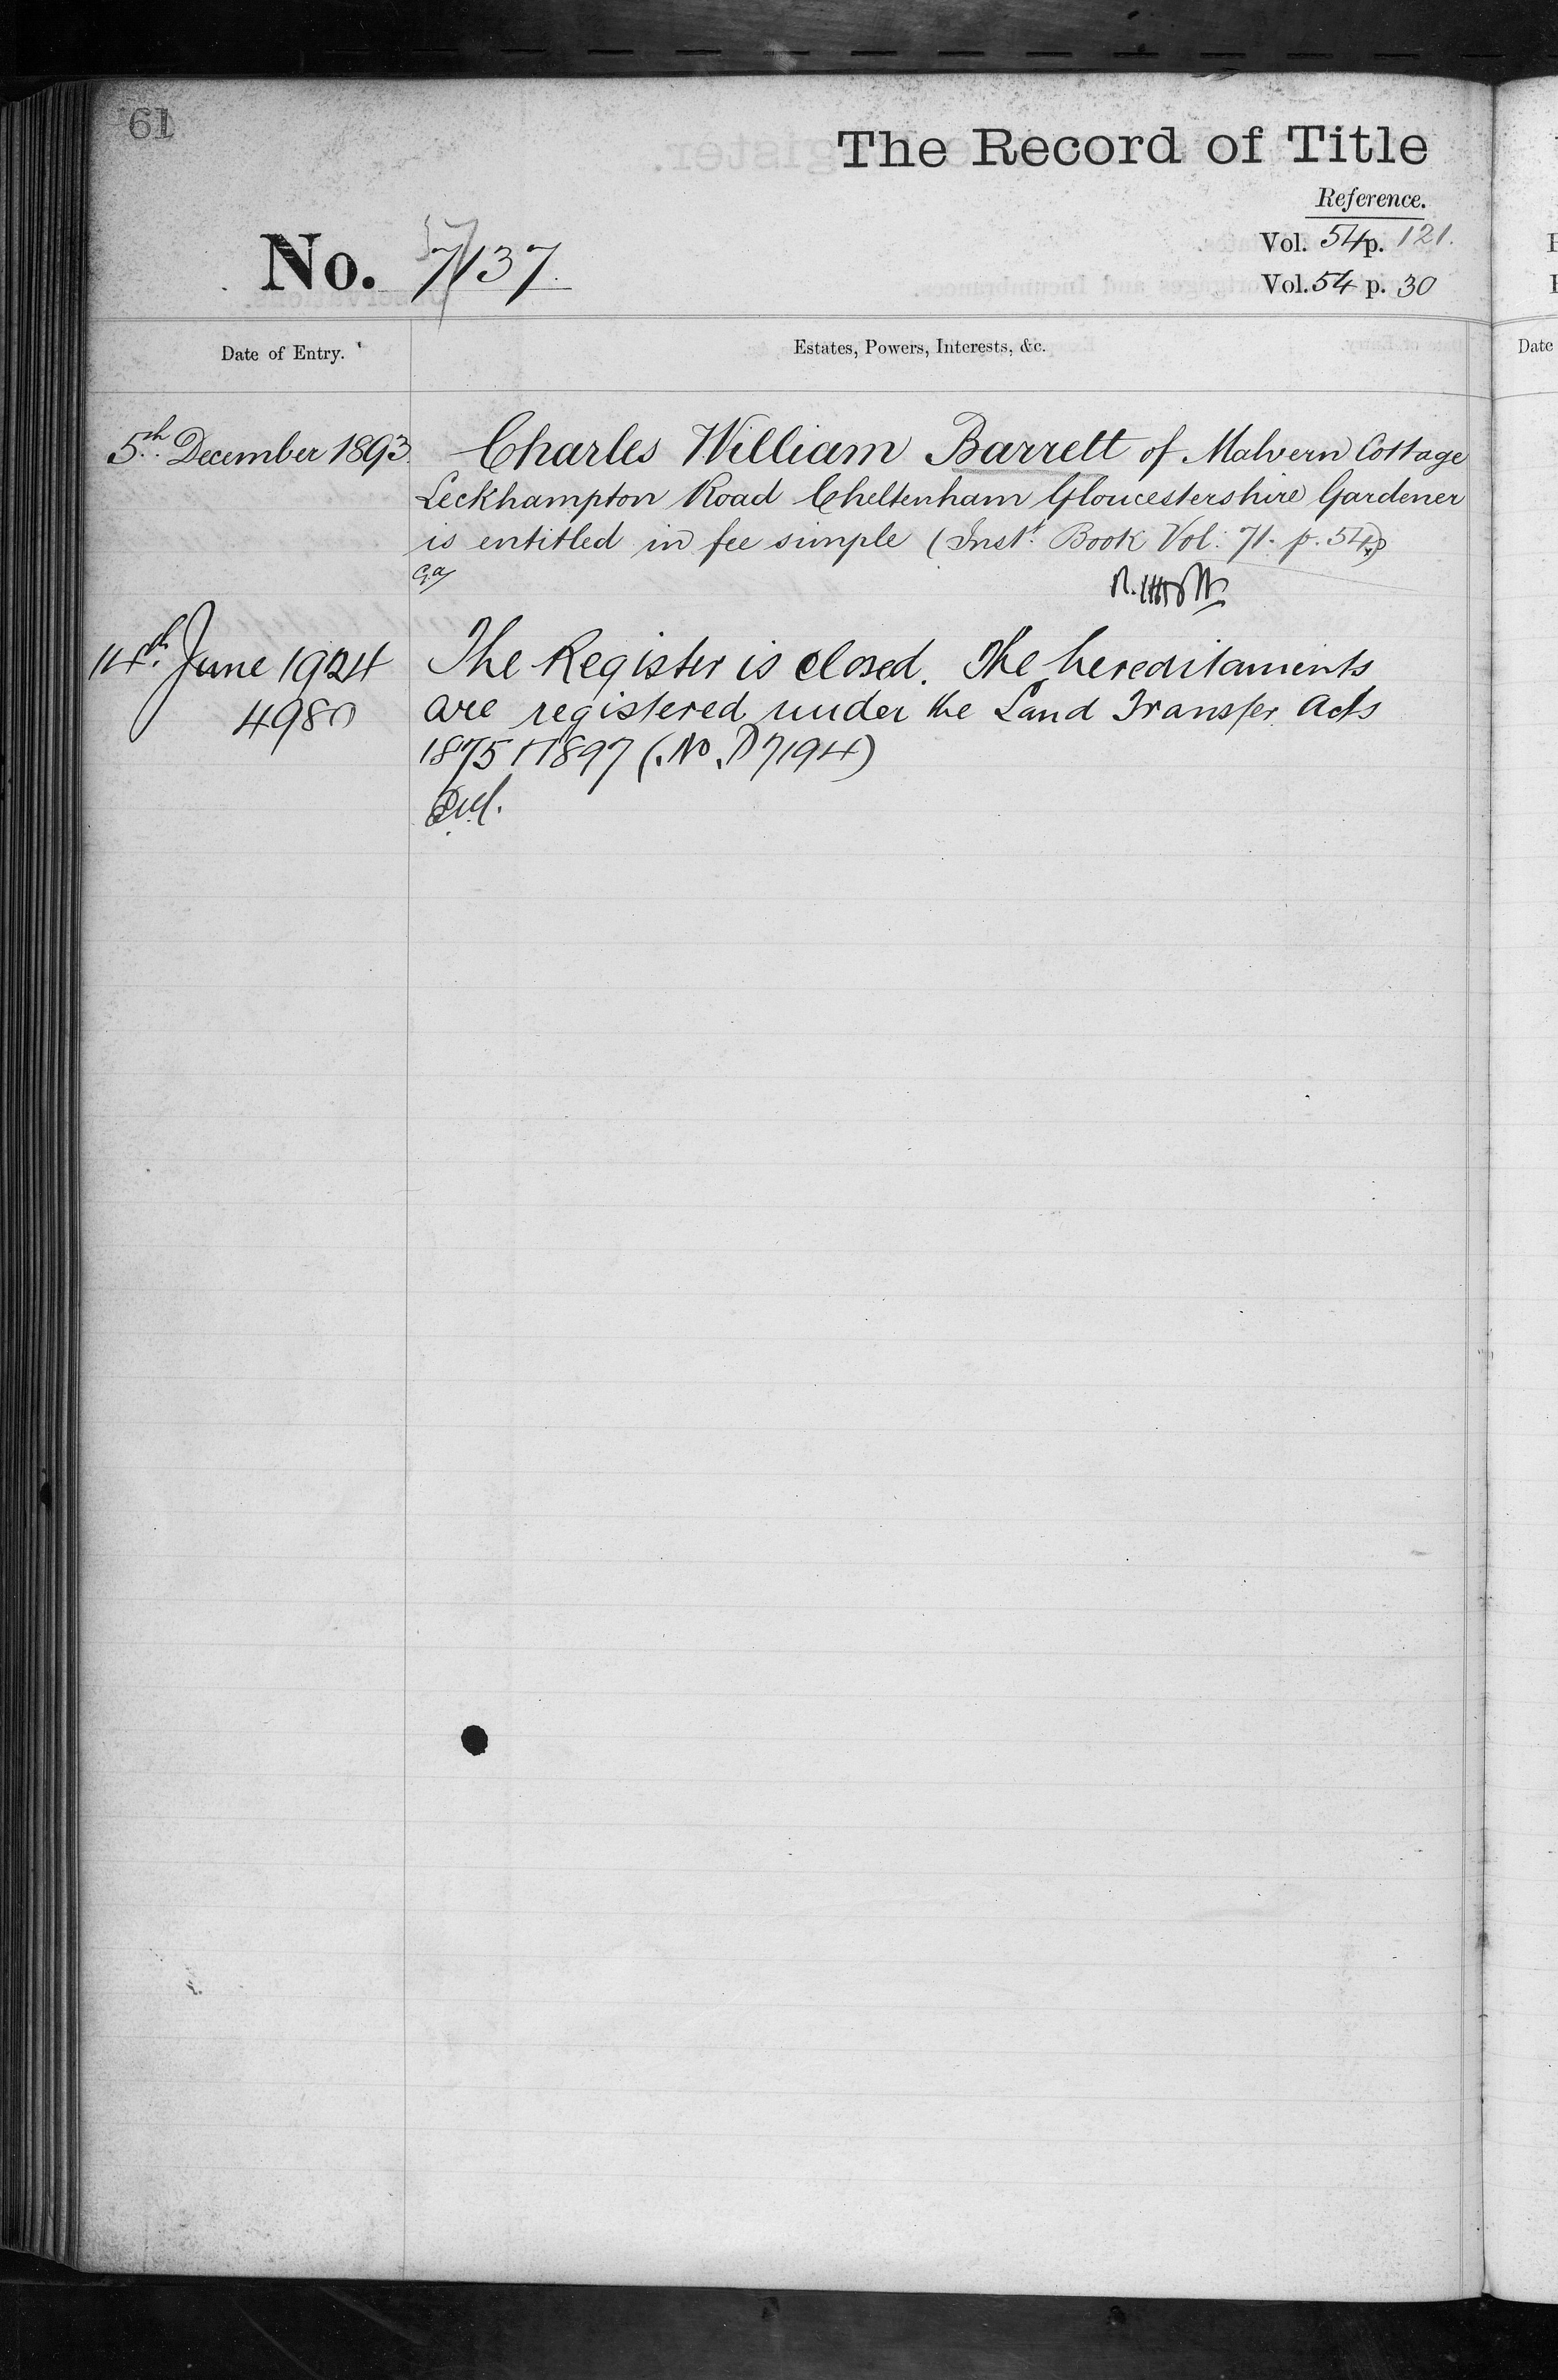 61
The Record of Title
Reference.
Vol. 54 p. 121.
No. 7137.
Vol. 54 p. 30
Date of Entry.
Estates, Powers, Interests, &c.
Date
5th. December 1893
Charles William Barrett of Malvern Cottage
Leckhampton Road Cheltenham Gloucestershire Gardener
is entitled in fee simple (Inst. Book Vol: 71. p. 54)
14th. June 1924
The Register is closed. The hereditaments
4980
are registered under the Land Transfer Acts
1875 & 1897 (No. D7194)